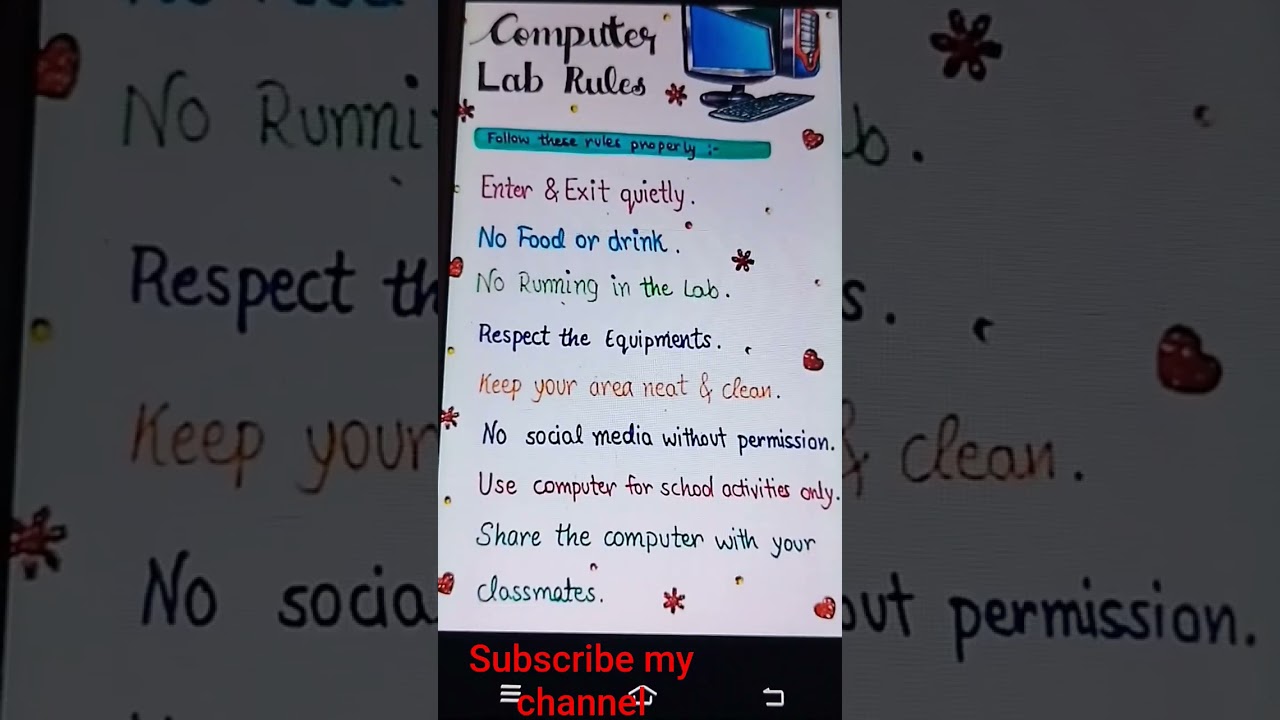 Computer
Lab Rules
Follow these rules properly :-
Enter & Exit quietly.
No Food or drink.
No Running in the Lab.
Respect the Equipments.
Keep your area neat & clean.
No social media without permission.
Use computer for school activities only.
Share the computer with your
classmates.
Subscribe my
channel